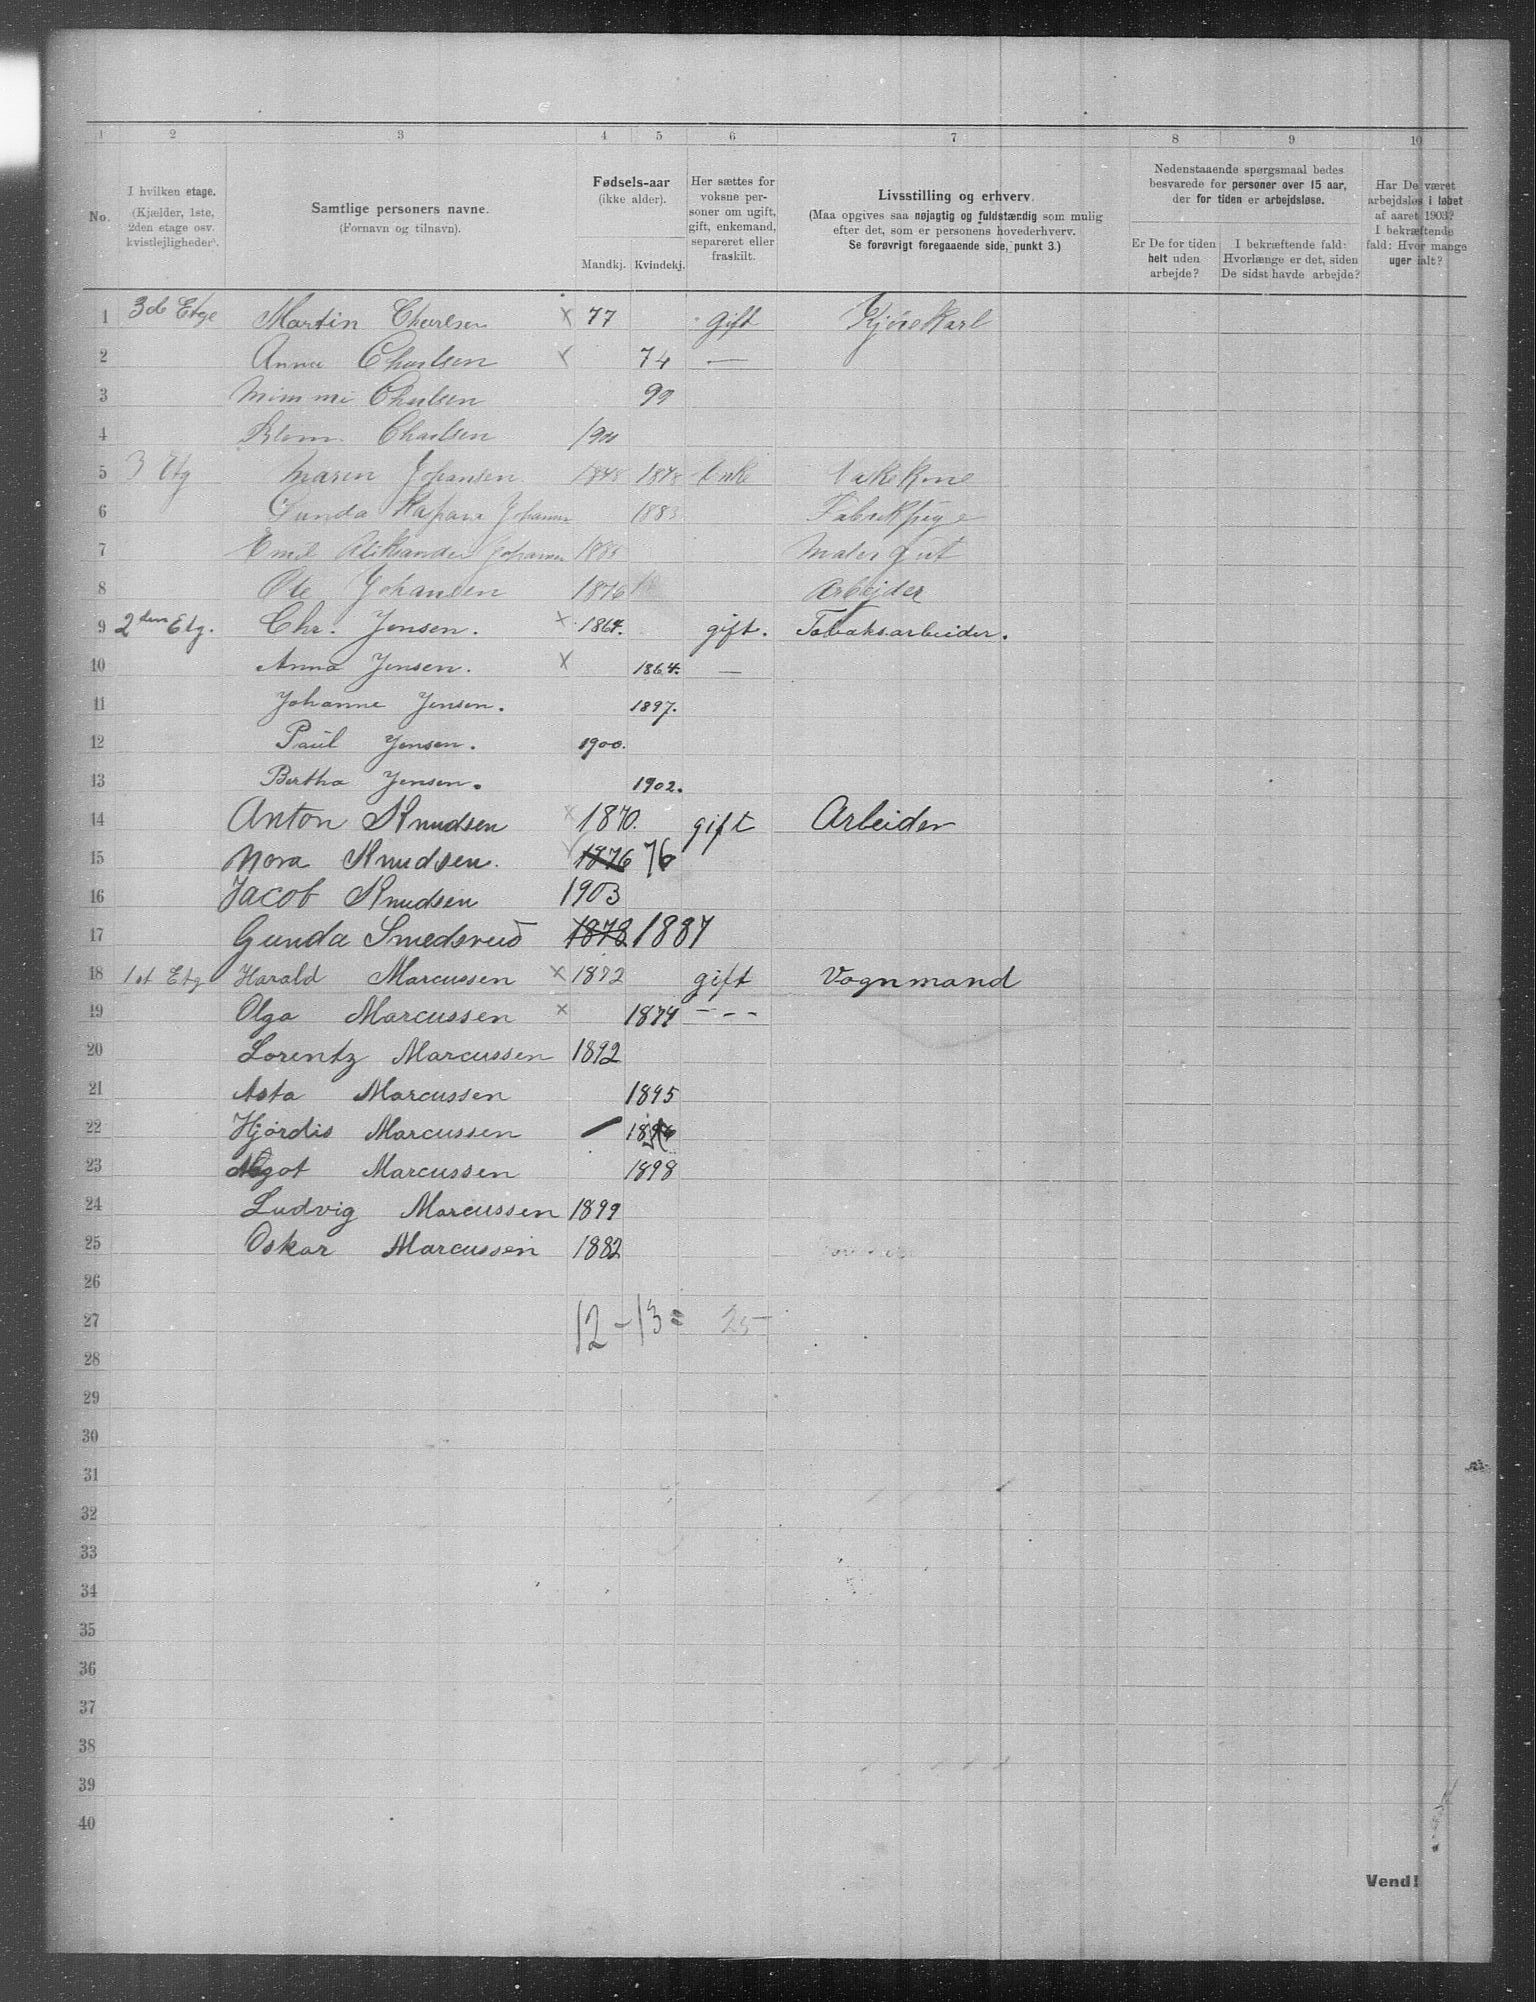 1 2 3 4 5 6 7 8 9 10
No.
I hvilken etage.
(Kjælder, 1ste,
2den etage osv.
kvistlejligheder).
Samtlige personers navne.
(Fornavn og tilnavn).
Fødsels-aar
(ikke alder).
Mandkj. Kvindekj.
Her sættes for
voksne per-
soner om ugift,
gift, enkemand,
separeret eller
fraskilt.
Livsstilling og erhverv.
(Maa opgives saa nøjagtig og fuldstændig som mulig
efter det, som er personens hovederhverv.
Se forøvrigt foregaaende side, punkt 3.)
Nedenstaaende spørgsmaal bedes
besvarede for personer over 15 aar,
der for tiden er arbejdsløse.
Er De for tiden
helt uden
arbejde?
I bekræftende fald:
Hvorlænge er det, siden
De sidst havde arbejde?
Har De været
arbejdsløs i løbet
af aaret 1903?
I bekræftende
fald: Hvor mange
uger ialt?
1 3de Etge Martin Charlsen × 77 gift Kjørekarl
2 Anna Charlsen × 74 —
3 Mimmi Charlsen 99
4 Charlsen
5 3 Etg Maren Johansen 1848 1848 Enke Vakekone
6 Gunda Johansen 1883 Fabrikpige
7 Emil Aleksander Johansen 1885 Malergut
8 Ole Johansen 1876 Arbejder
9 2den Etg. Chr. Jensen. × 1864. gift. Tobaksarbeider.
10 Anna Jensen. × 1864. —
11 Johanne Jensen. 1897.
12 Paul Jensen. 1900.
13 Bertha Jensen. 1902.
14 Anton Knudsen × 1870. gift Arbeider
15 Nora Knudsen. 1876 76
16 Jacob Knudsen 1903
17 Gunda Smedsrud 1878 1887
18 1st Etg Harald Marcussen × 1872 gift Vognmand
19 Olga Marcussen × 1874 - - -
20 Lorentz Marcussen 1892
21 Asta Marcussen 1895
22 Hjørdis Marcussen
23 Marcussen 1898
24 Ludvig Marcussen 1899
25 Oskar Marcussen 1882
26
27 12 - 13 = 25
28
29
30
31
32
33
34
35
36
37
38
39
40
Vend!